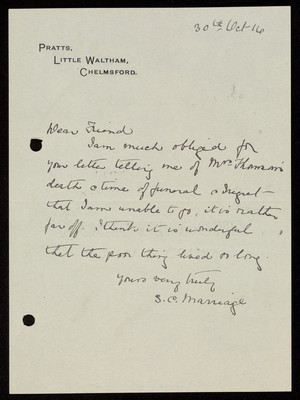 30th Oct 16
PRATTS,
LITTLE WALTHAM,
CHELMSFORD.
Dear Friend
I am much obliged for
your letter telling me of Mrs Thomson's
death & time of funeral & regret
that I am unable to go, it is rather
far off. I think it is wonderful
that the poor thing lived so long.
Yours very truly
S. C. Marriage